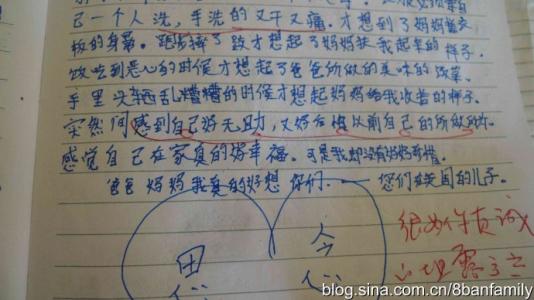 己一个人洗,手洗的又干又痛.才想到了妈妈搓衣
板的身影.跑步摔了跤才想起了妈妈扶我起来的样子.
饭吃到恶心的时候才想起了爸爸所做的美味的饭菜.
手里头乱糟糟的时候才想起妈妈给我收拾的样子.
突然间感到自己好无助,又好后悔以前自己的所做所为.
感觉自己在家真的好幸福.可是我却没有好好珍惜.
爸爸妈妈我真的好想你们.——您们在美国的儿子.
思 念
blog.sina.com.cn/8banfamily